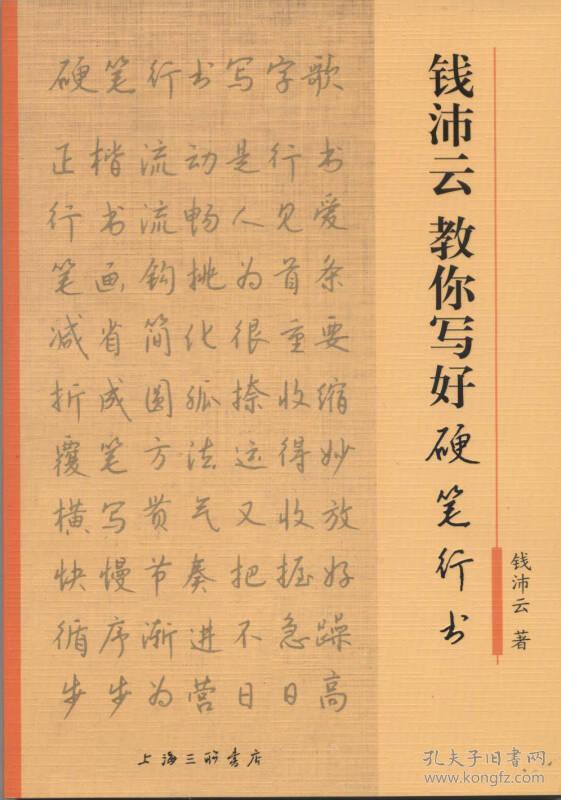 硬笔行书写字歌
正楷流动是行书
行书流畅人见爱
笔画钩挑为首条
减省简化很重要
折成圆弧捺收缩
覆笔方法运得妙
横写贯气又收放
快慢节奏把握好
循序渐进不急躁
步步为营日日高
钱沛云 教你写好硬笔行书
钱沛云 著
上海三联书店
孔夫子旧书网
www.kongfz.com